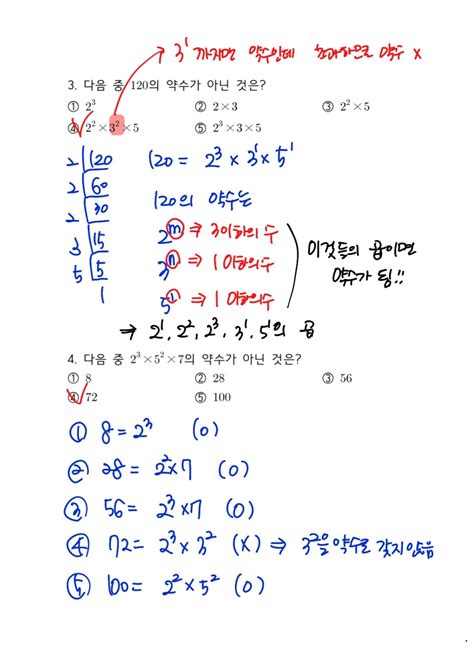 → 3¹ 까지만 약수인데 초과하므로 약수 x
3. 다음 중 120의 약수가 아닌 것은?
① 2³ ② 2×3 ③ 2²×5
④ 2²×3²×5 ⑤ 2³×3×5
2 120 120 = 2³×3¹×5¹
2 60
2 30 120의 약수는
3 15 2ᵐ ⇒ 3이하의 수
5 5 3ⁿ ⇒ 1이하의 수 이것들의 곱이면
1 5ˡ ⇒ 1이하의 수 약수가 됨!!
⇒ 2¹, 2², 2³, 3¹, 5¹의 곱
4. 다음 중 2³×5²×7의 약수가 아닌 것은?
① 8 ② 28 ③ 56
④ 72 ⑤ 100
① 8 = 2³ (O)
② 28 = 2²×7 (O)
③ 56 = 2³×7 (O)
④ 72 = 2³×3² (X) ⇒ 3²을 약수로 갖지 않음
⑤ 100 = 2²×5² (O)